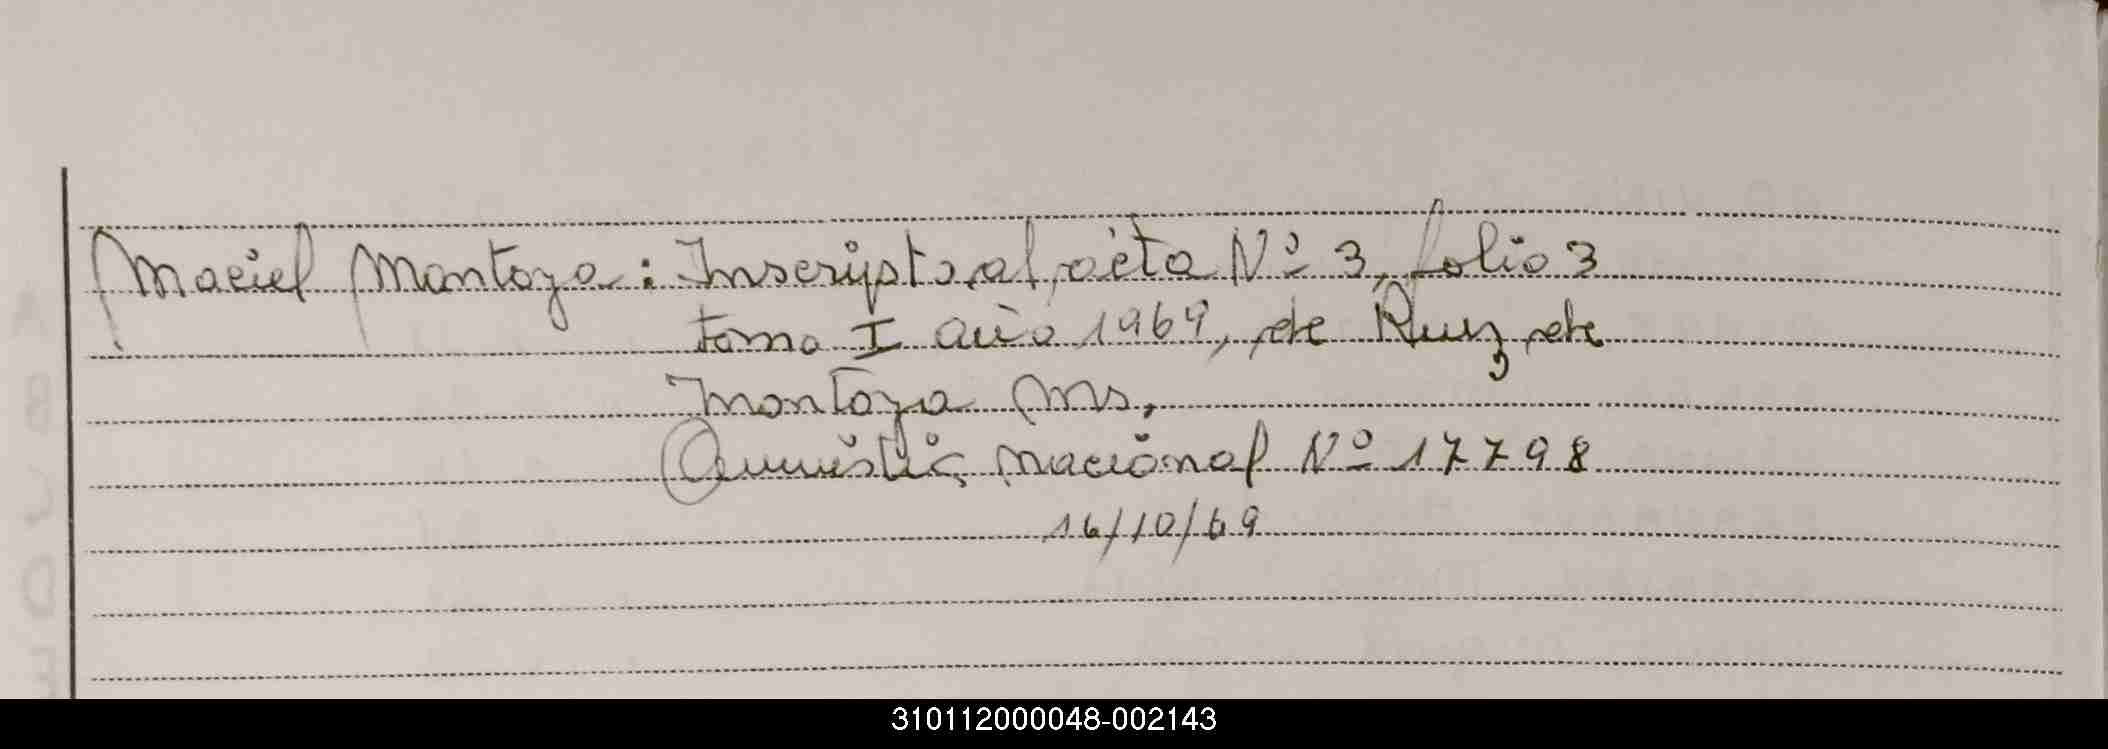 Maciel Montoya: Inscripto al acta Nº 3, folio 3
tomo I año 1969, de Ruiz de
Montoya Ms.
Amnistia Nacional Nº 17798
16/10/69
310112000048-002143